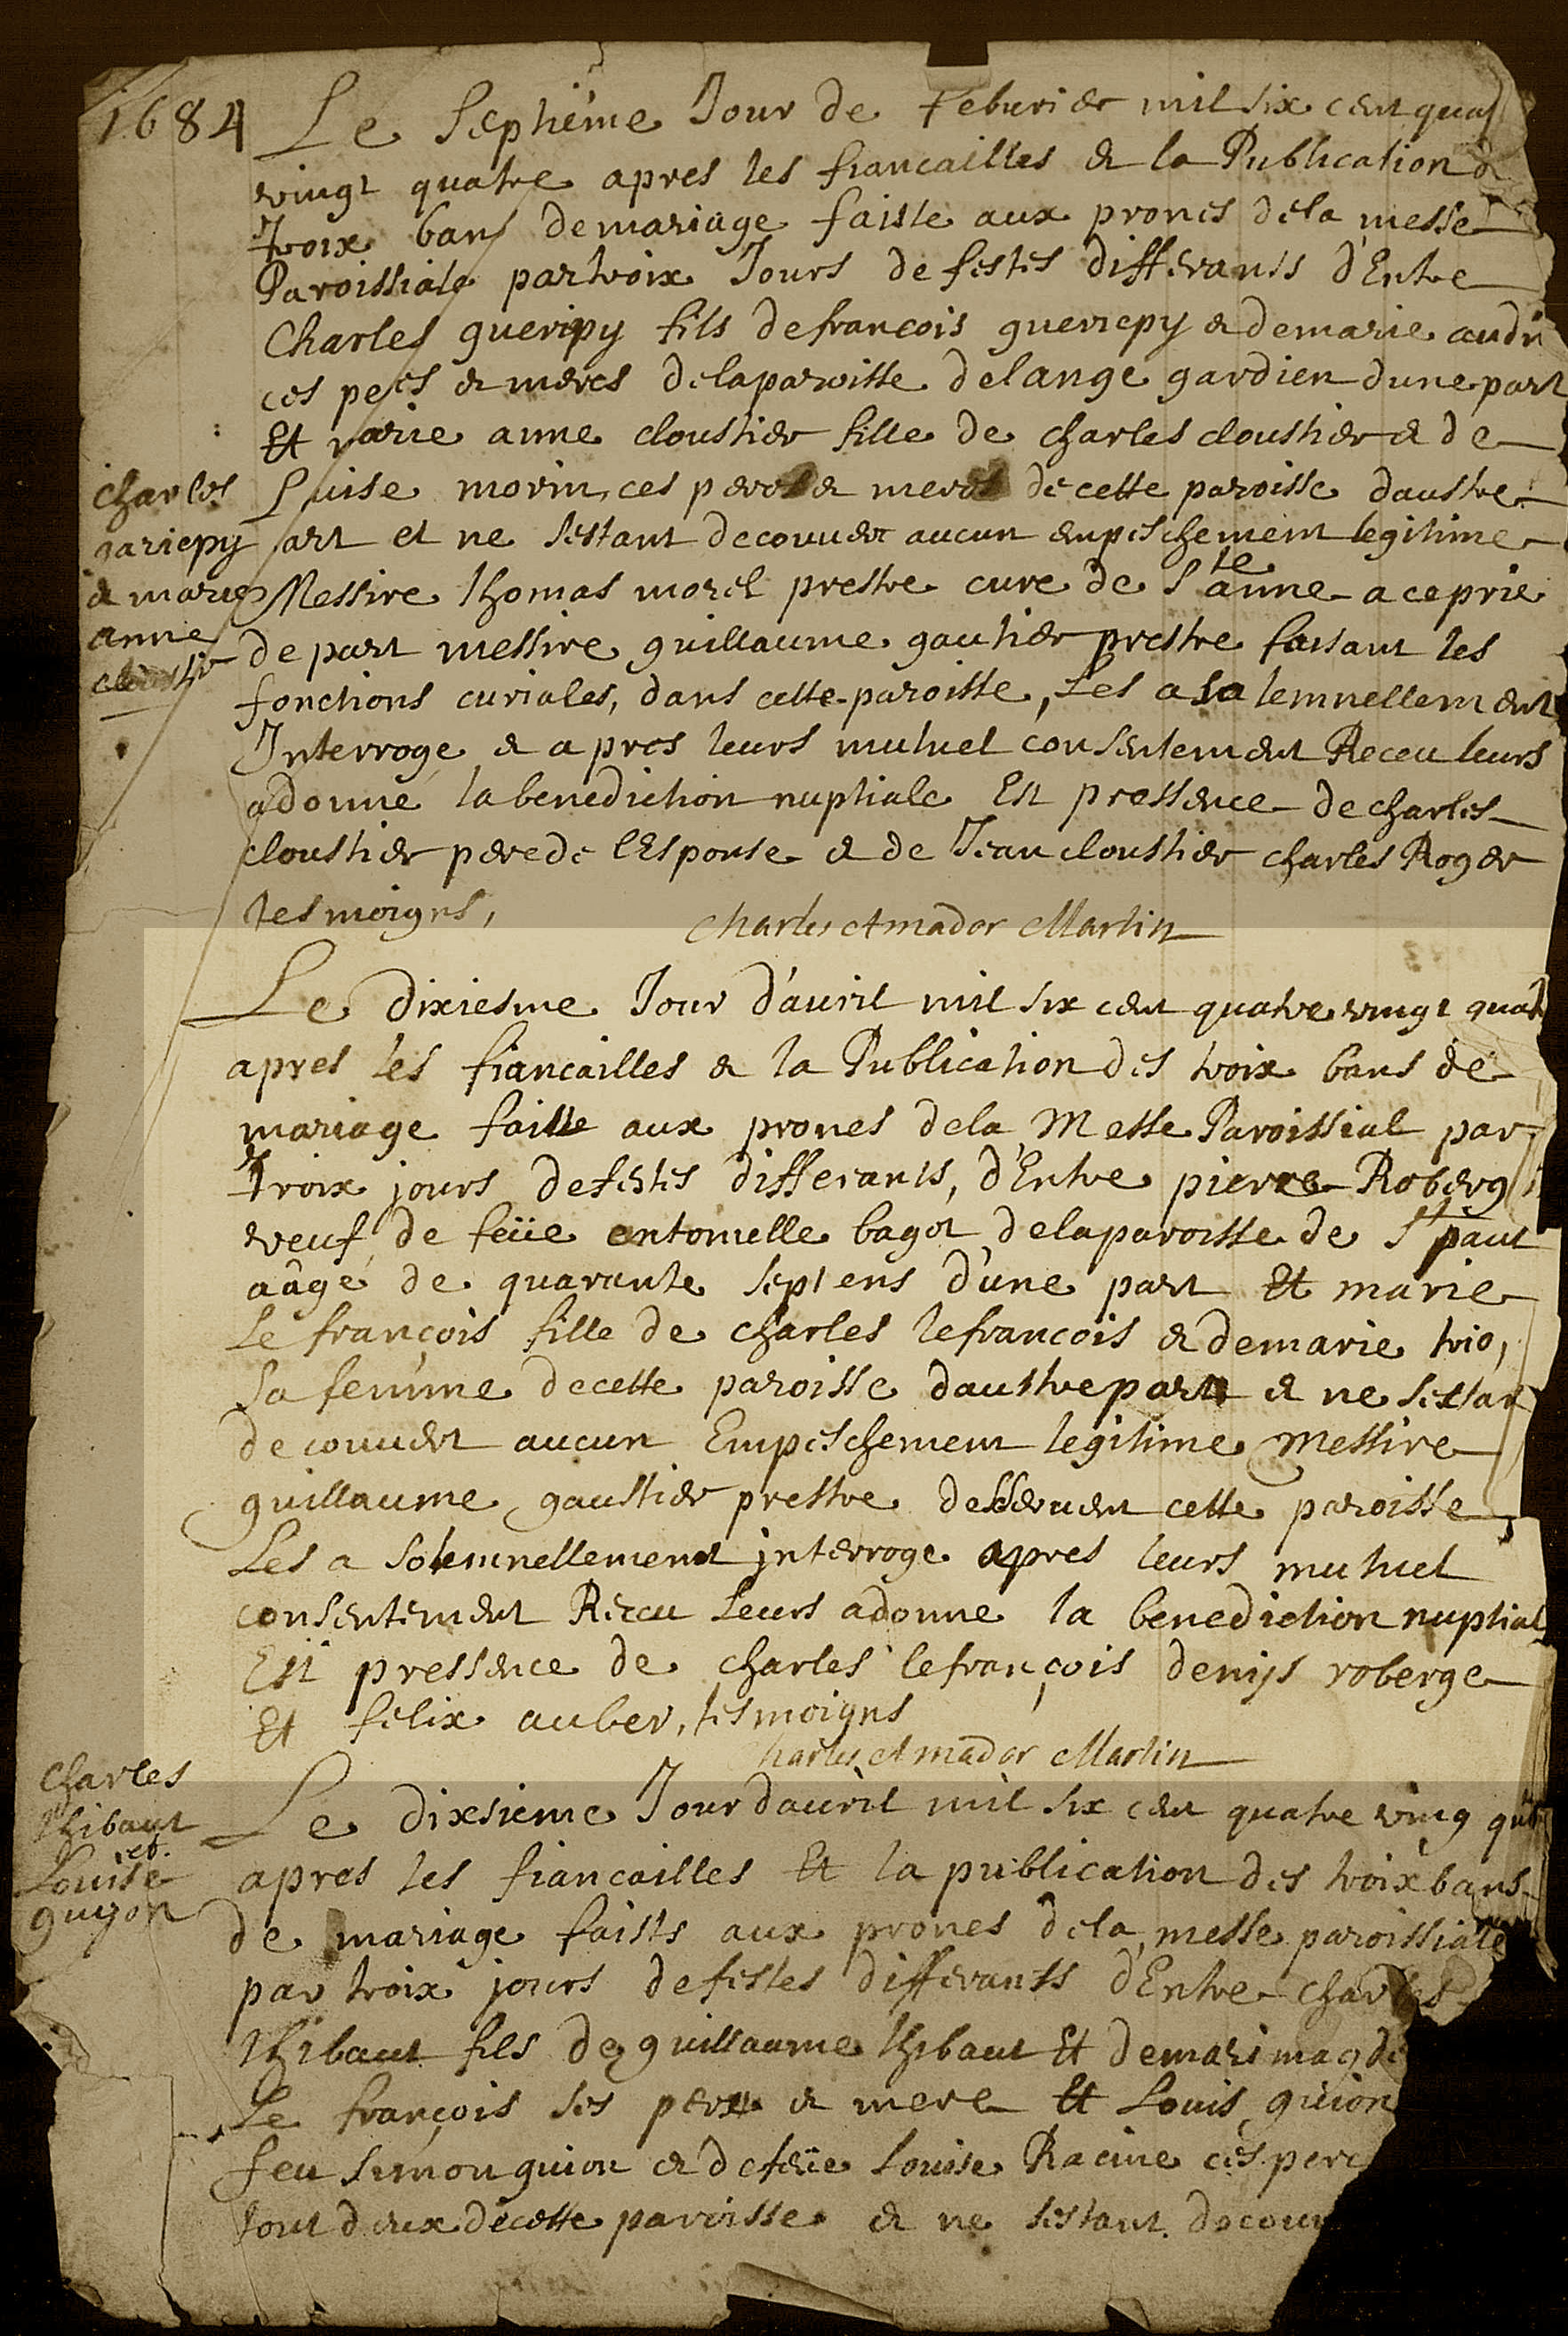 1684
Le Septiéme Jour de feburier mil six cent quat
vingt quatre apres les fiancailles & la Publication d
troix bans de mariage faiste aux prones dela messe
Paroissiale par troix Jours de festes differants d'Entre
Charles gueripy fils de francois gueriepy & de marie audi
ces peres & meres dela paroisse de lange gardien dune part
Et marie anne cloustier fille de charles cloustier & de
Luise morin, ces peres & meres de cette paroisse daustre
part et ne sestant decouuert aucun empeschement legitime
Messire thomas morel prestre cure de Ste anne a ce prie
de part messire guillaume gautier prestre faisant les
fonctions curiales, dans cette paroisse, Les a solemnellement
Interrogé & apres leurs mutuel consentement Receu leurs
a donné la benediction nuptiale En pressence de charles
cloustier pere de l'Espouse & de Jean cloustier charles Roger
tesmoigns,
Charles Amador Martin
charles
gariepy
& marie
anne
cloustier
Le dixiesme Jour d'auril mil six cent quatre vingt quat
apres les fiancailles & la Publication des troix bans de
mariage faiste aux prones dela Messe Paroissial par
troix jours de festes differants, d'Entre pierre Roberg
veuf de feüe antoinette bagot dela paroisse de St paul
aâgé de quarante sept ens d'une part Et marie
Le françois fille de charles lefrancois & de marie trio,
sa femme de cette paroisse daustre part & ne sestan
decouuert aucun Empeschement legitime Messire
guillaume gaustier prestre desseruent cette paroisse,
Les a solemnellement interroge apres leurs mutuel
consentement Receu Leurs a donne la benediction nuptial
En pressence de charles lefrançois denys roberge
Et felix auber, tesmoigns
Charles Amador Martin
Charles
thibaut
et
Louise
guyon
Le dixsieme Jour dauril mil six cent quatre ving
apres les fiancailles Et la publication des troix bans
de mariage faists aux prones dela messe paroissiale
par troix jours de festes differants d'Entre Charles
thibaut fils de guillaume thibaut Et de mari magde
Le françois ses pere & mere Et Louis guion
feu simon guion & de feüe Louise Racine ces pere
tout deux de cette paroisse & ne sestant decouv